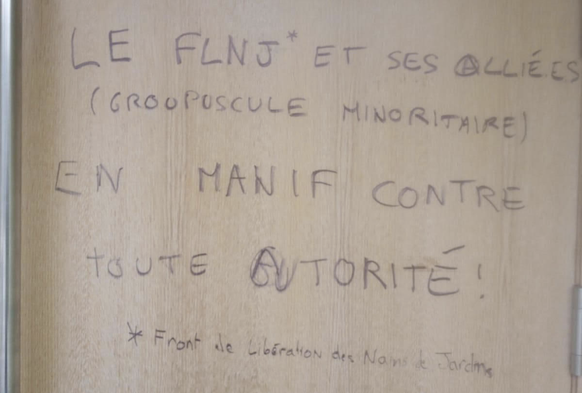 LE FLNJ* ET SES ALLIÉES
(GROOPUSCULE MINORITAIRE)
EN MANIF CONTRE
TOUTE AUTORITÉ !
* Front de Libération des Nains de Jardins